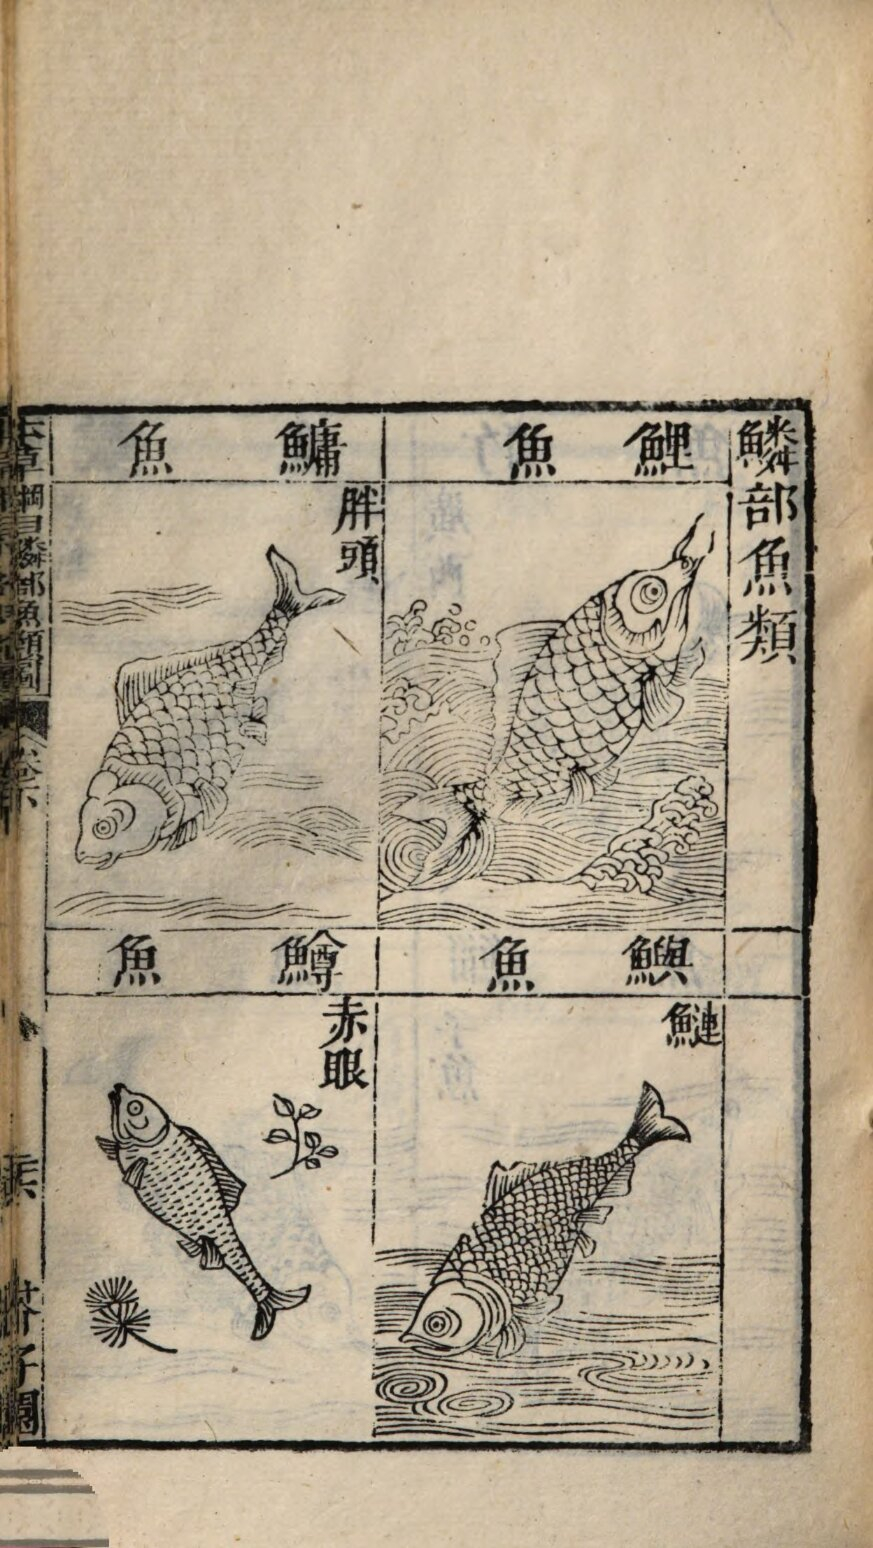 鱗部魚類
鯉魚
鱅魚
胖頭
鱮魚
鰱
鱒魚
赤眼
本草綱目鱗部魚類圖
卷下
芥子園